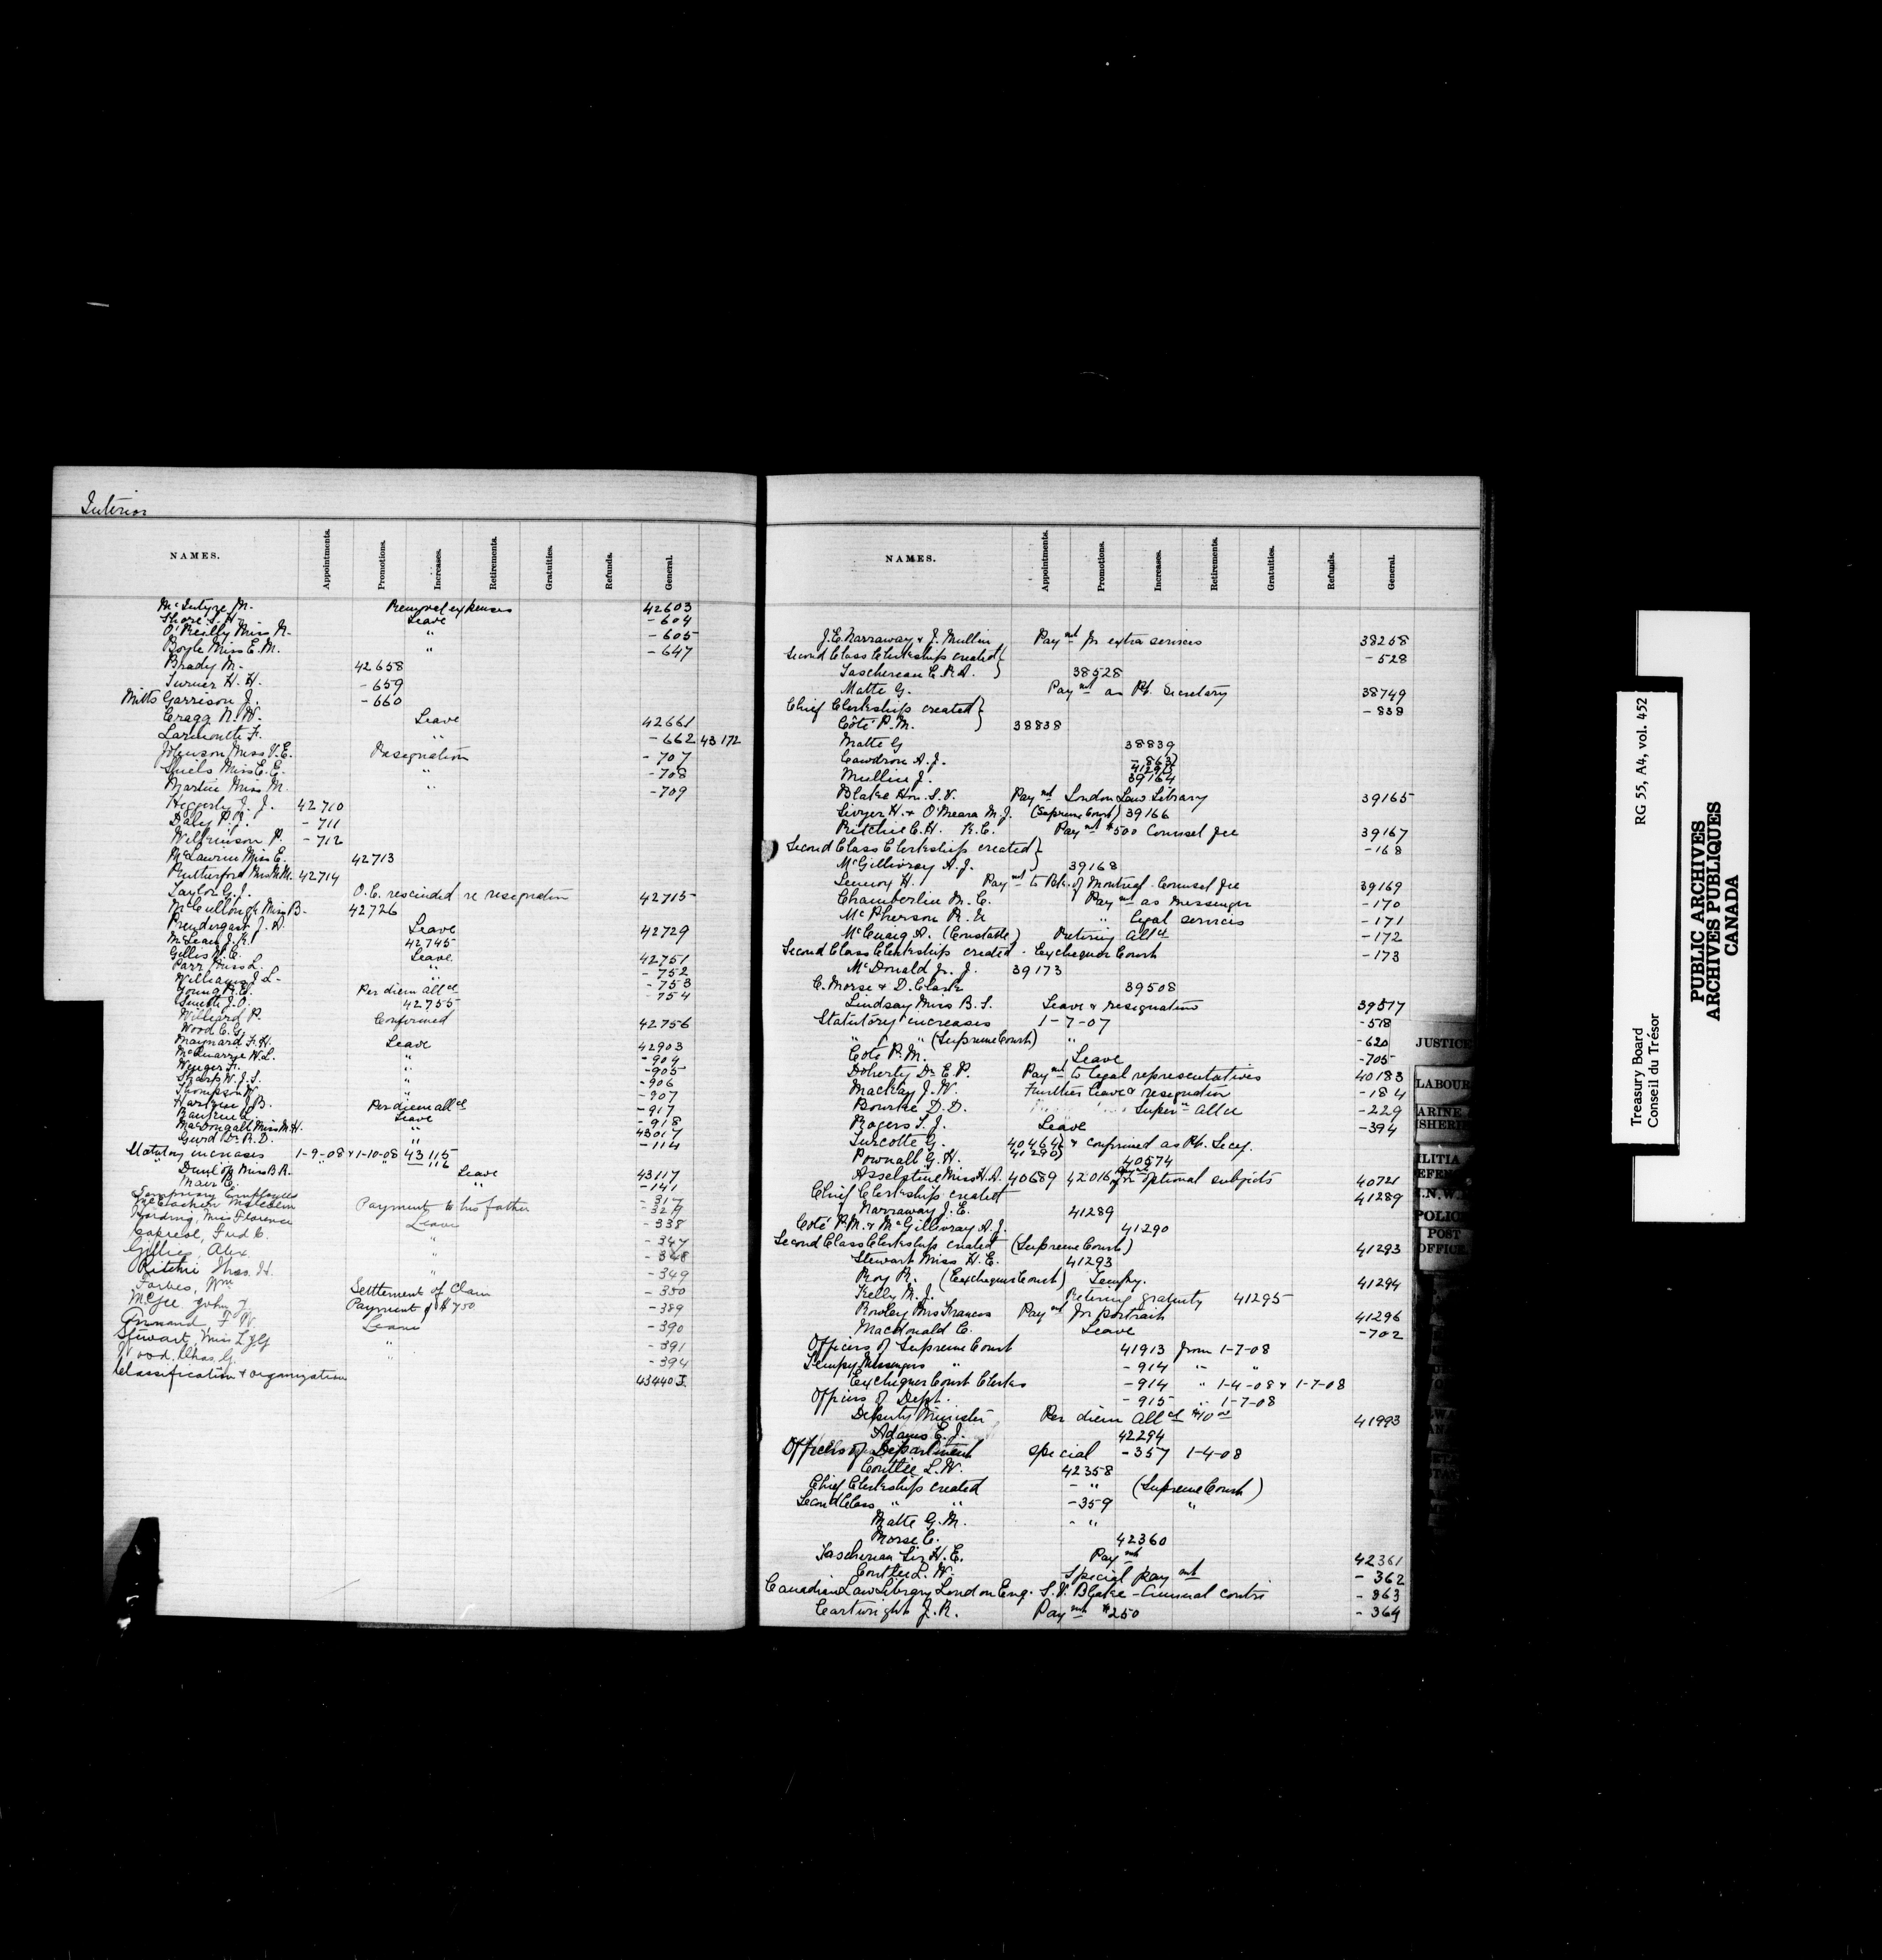 Interior
NAMES. Appointments. Promotions. Increases. Retirements. Gratuities. Refunds. General.
McIntyre M. Removal expenses 42603
Shore S. H. Leave -604
O'Reilly Miss N. " -605
Boyle Miss E. M. " -647
Brady M. 42658
Turner H. H. -659
Mitts Garrison J. -660
Cragg N. W. Leave 42661
Larmonth F. " -662 43172
Johnson Miss V. E. Resignation -707
Shiels Miss E. E. " -708
Martin Miss M. " -709
Heggerty J. J. 42710
Daly P. J. -711
Wilkinson P. -712
McLaurin Miss E. 42713
Rutherford Mrs M. M. 42714
Taylor G. J. O.C. rescinded re resignation 42715
McCullough Miss B. 42726
Prendergast J. A. Leave 42729
McLean J. K. 42745
Gillis N. C. Leave 42751
Parr Miss L. " -752
Williams J. L. " -753
Young R. E. Per diem allce -754
Smith J. O. 42755
Williard P. Confirmed 42756
Wood C. G.
Maynard F. H. Leave 42903
McQuarrye N. L. " -904
Wenger F. " -905
Sharp W. J. S. " -906
Thompson W. " -907
Hartzen J. B. Per diem allce -917
Leave -918
MacDougall Miss M. H. " 43017
Gurd Dr. R. D. " -114
Statutory increases 1-9-08 & 1-10-08 43115
" " " -116
Dunlop Miss B. R. Leave 43117
Mair C. " -141
Temporary Employees -317
McEachern Malcolm Payment to his father -327
Harding, Miss Florence Leave -338
Capreol, Fred C. " -347
Gillies, Alex. " -348
Ritchie Thos. H. " -349
Forbes, Wm Settlement of Claim -350
McGee John J. Payment of $750 -389
F. W. Leave -390
Stewart, Miss " -391
Wood, Chas. G. " -394
Classification & organization 43440 I.
NAMES. Appointments. Promotions. Increases. Retirements. Gratuities. Refunds. General.
J. E. Narraway & J. Mullin Paymt for extra services 38258
Second Class Clerkship created } -528
Taschereau C. R. A. } 38528
Matte G. Paymt as Pt. Secretary 38749
Chief Clerkship created } -838
Côté P. M. } 38838
Matte G 38839
Cawdron A. J. -863 }
41291 }
Mullin J. 39164
Blake Hon. S. V. Paymt London Law Library 39165
Sivyer H. & O'Meara M. J. (Supreme Court) 39166
Ritchie C. H. K.C. Paymt $500 Counsel fee 39167
Second Class Clerkship created } -168
McGillivray A. J. } 39168
Lemoy H. Paymt to Bk. of Montreal. Counsel fee 39169
Chamberlin M. C. Paymt as messenger -170
McPherson R. U " legal services -171
McCuaig A. (Constable) Retiring Allce -172
Second Class Clerkship created - Exchequer Court -173
McDonald Jr. J. 39173
C. Morse & D. Clark 39508
Lindsay Miss B. S. Leave & resignation 39517
Statutory increases 1-7-07 -518
" " (Supreme Court) " -620
Coté P. M. Leave -705
Doherty Dr. E. P. Paymt to legal representatives 40183
Mackay J. W. Further leave & resignation -184
Bourke D. D. Supern Allce -229
Rogers S. J. Leave -394
Turcotte G. 40464 } & confirmed as Pt. Secy.
41290 }
Pownall G. H. 40574
Asselstine Miss H. A. 40689 42016 for optional subjects 40721
Chief Clerkship created 41289
Narraway J. E. 41289
Coté P. M. & McGillivray A. J. 41290
Second Class Clerkship created (Supreme Court) 41293
Stewart Miss H. E. 41293
Roy R. (Exchequer Court) Tempry. 41294
Kelly M. J. Retiring gratuity 41295
Rowley Mrs Frances Paymt for portrait 41296
Macdonald C. Leave -702
Officers of Supreme Court 41913 from 1-7-08
Tempy Messengers " -914 " "
Exchequer Court Clerks -914 " 1-4-08 & 1-7-08
Officers of Dept. -915 " 1-7-08
Deputy Minister Per diem Allce $10.00 41993
Adams E. J. 42294
Officers of Department special -357 1-4-08
Couttlée L. W. 42358
Chief Clerkship created - " (Supreme Court)
Second Class " " -359 "
Matte G. M. - "
Morse C. 42360
Taschereau Sir H. E. Paymt 42361
Couttlée L. W. Special paymt -362
Canadian Law Library London Eng. S. V. Blake - Annual contrn -363
Cartwright J. R. Paymt $250 -364
JUSTICE
LABOUR
POLICE
POST OFFICE.
RG 55, A4, vol. 452
Treasury Board
Conseil du Trésor
PUBLIC ARCHIVES
ARCHIVES PUBLIQUES
CANADA